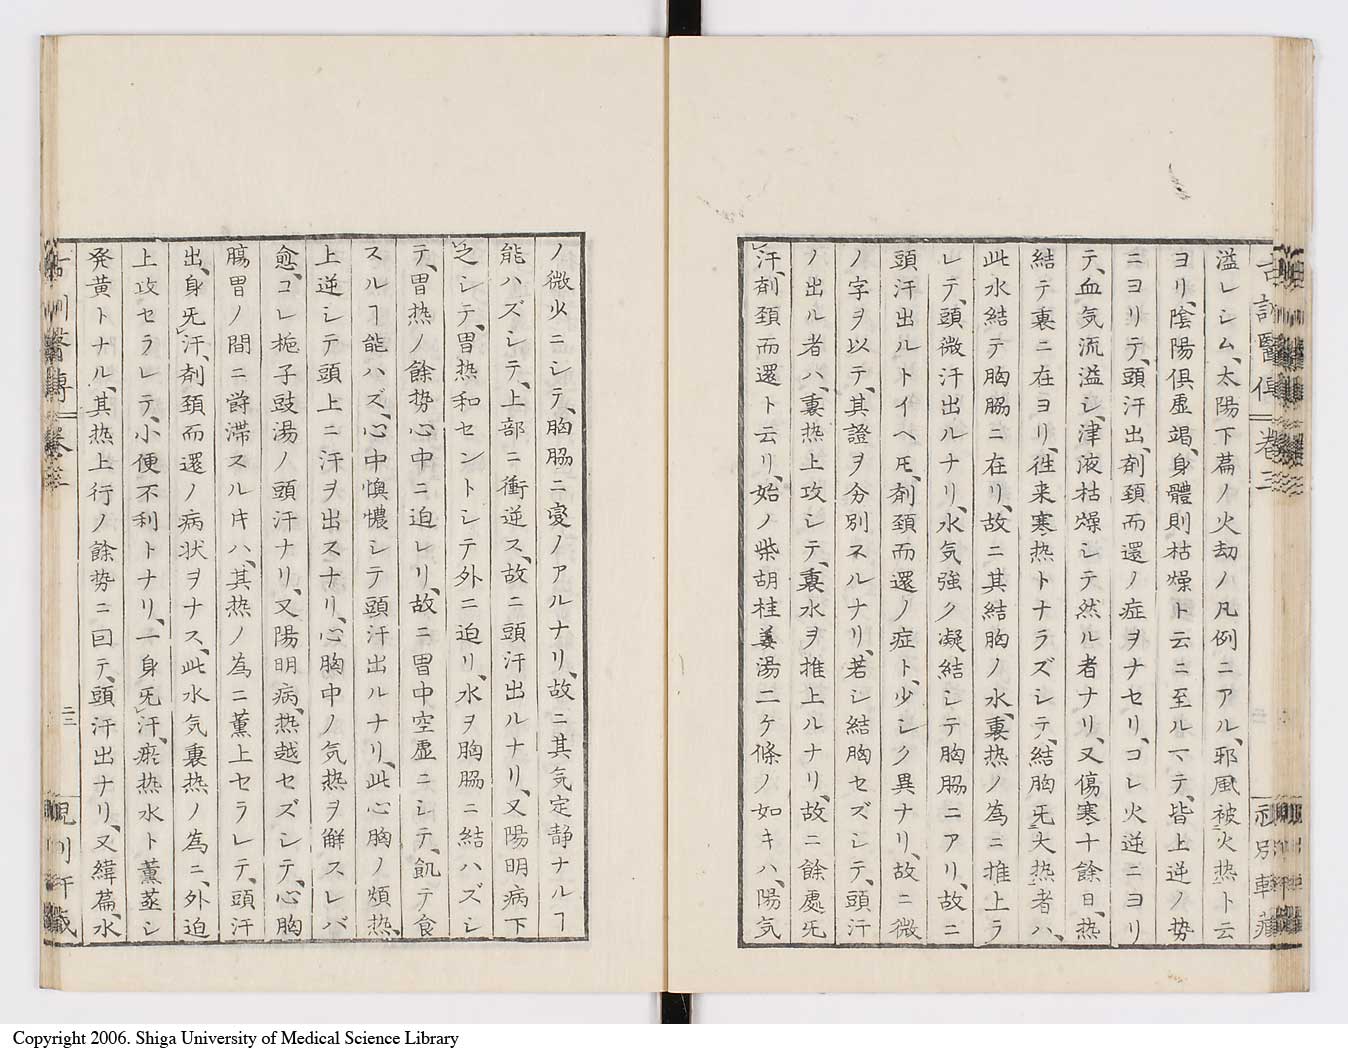 古訓醫傳 卷三
溢レシム、太陽下篇ノ火劫ノ凡例ニアル、邪風被火熱ト云
ヨリ、陰陽俱虛竭、身體則枯燥ト云ニ至ルマテ、皆上逆ノ勢
ニヨリテ、頭汗出、剤頚而還ノ症ヲナセリ、コレ火逆ニヨリ
テ、血気流溢シ、津液枯燥シテ然ル者ナリ、又傷寒十餘日、熱
結テ裏ニ在ヨリ、徃来寒熱トナラズシテ、結胸旡大熱者ハ、
此水結テ胸脇ニ在リ、故ニ其結胸ノ水、裏熱ノ為ニ推上ラ
レテ、頭微汗出ルナリ、水気強ク凝結シテ胸脇ニアリ、故ニ
頭汗出ルトイヘ𪜈、剤頚而還ノ症ト、少シク異ナリ、故ニ微
ノ字ヲ以テ、其證ヲ分別ネルナリ、若シ結胸セズシテ、頭汗
ノ出ル者ハ、裏熱上攻シテ、裏水ヲ推上ルナリ、故ニ餘處旡
汗、剤頚而還ト云リ、始ノ柴胡桂姜湯二ケ條ノ如キハ、陽気
ノ微少ニシテ、胸脇ニ変ノアルナリ、故ニ其気定静ナルヿ
能ハズシテ、上部ニ衝逆ス、故ニ頭汗出ルナリ、又陽明病下
之シテ、胃熱和セントシテ外ニ迫リ、水ヲ胸脇ニ結ハズシ
テ、胃熱ノ餘勢心中ニ迫レリ、故ニ胃中空虛ニシテ、飢テ食
スルヿ能ハズ、心中懊憹シテ頭汗出ルナリ、此心胸ノ煩熱、
上逆シテ頭上ニ汗ヲ出スナリ、心胸中ノ気熱ヲ解スレバ
愈、コレ梔子豉湯ノ頭汗ナリ、又陽明病、熱越セズシテ、心胸
腸胃ノ間ニ欝滞スル𪜈ハ、其熱ノ為ニ薫上セラレテ、頭汗
出、身旡汗、剤頚而還ノ病状ヲナス、此水気裏熱ノ為ニ、外迫
上攻セラレテ、小便不利トナリ、一身旡汗、瘀熱水ト薫蒸シ
発黄トナル、其熱上行ノ餘勢ニ回テ、頭汗出ナリ、又緯篇、水